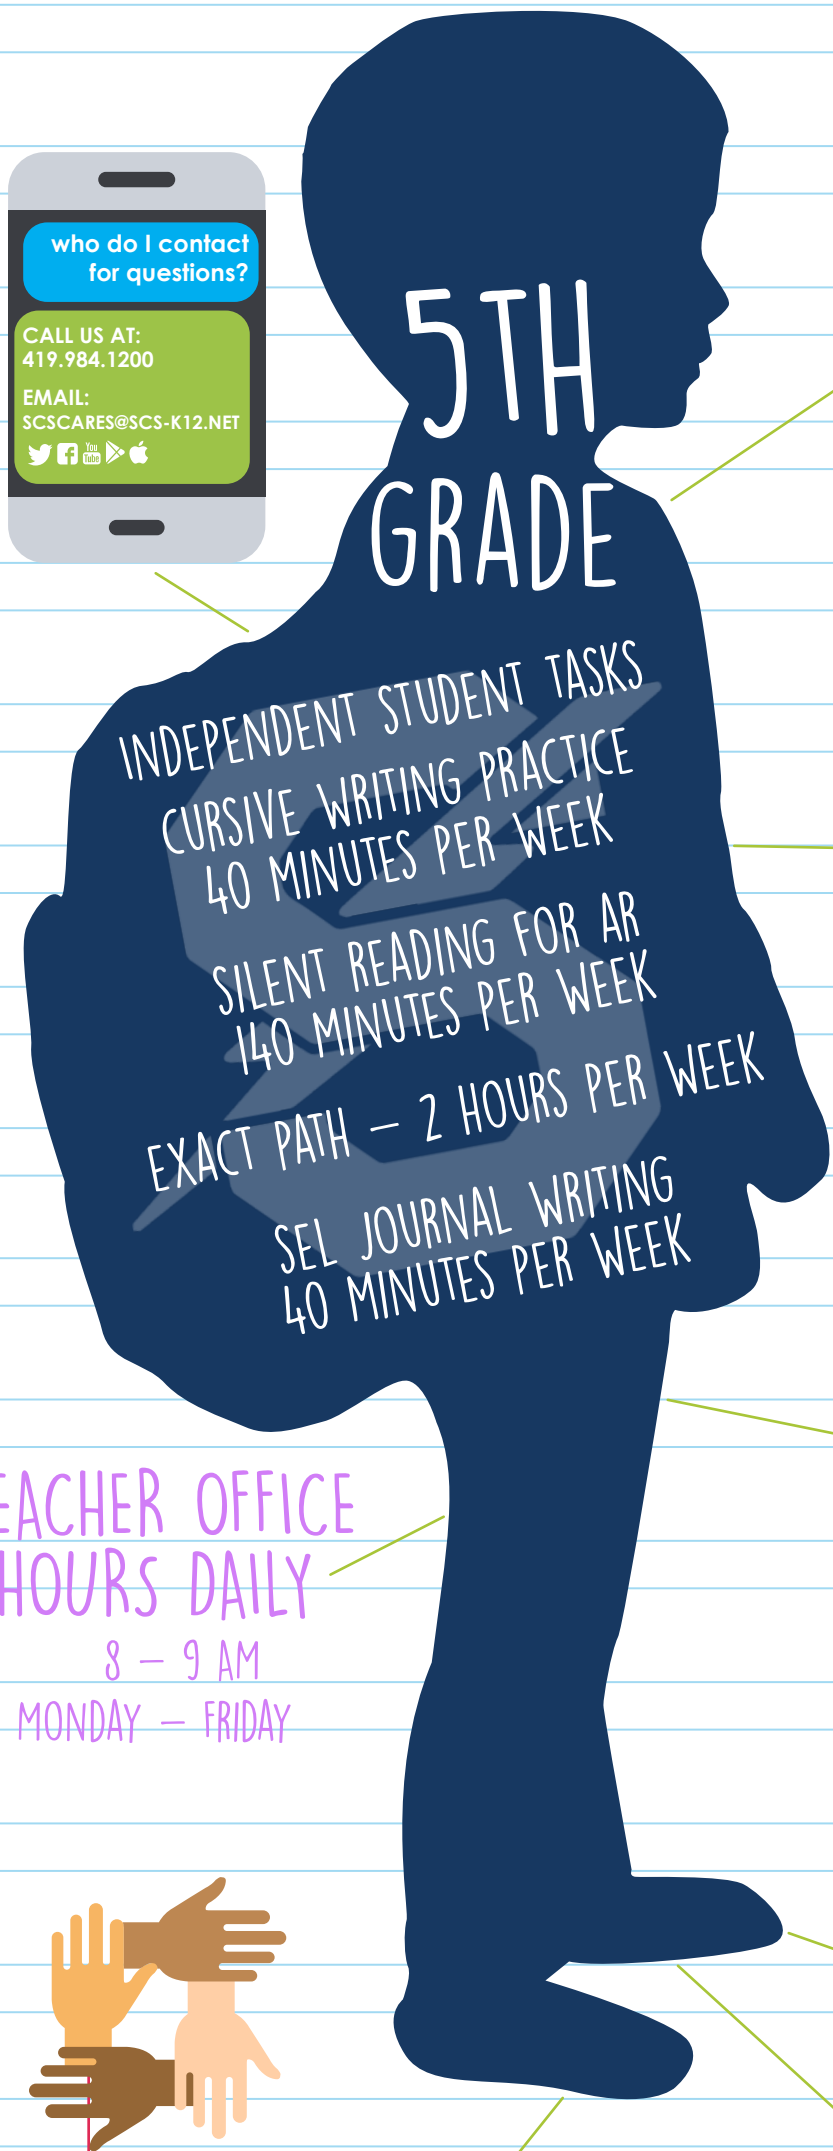 who do I contact
for questions?
CALL US AT:
419.984.1200
EMAIL:
SCSCARES@SCS-K12.NET
You
Tube
5TH
GRADE
INDEPENDENT STUDENT TASKS
CURSIVE WRITING PRACTICE
40 MINUTES PER WEEK
SILENT READING FOR AR
140 MINUTES PER WEEK
EXACT PATH – 2 HOURS PER WEEK
SEL JOURNAL WRITING
40 MINUTES PER WEEK
EACHER OFFICE
HOURS DAILY
8 – 9 AM
MONDAY – FRIDAY